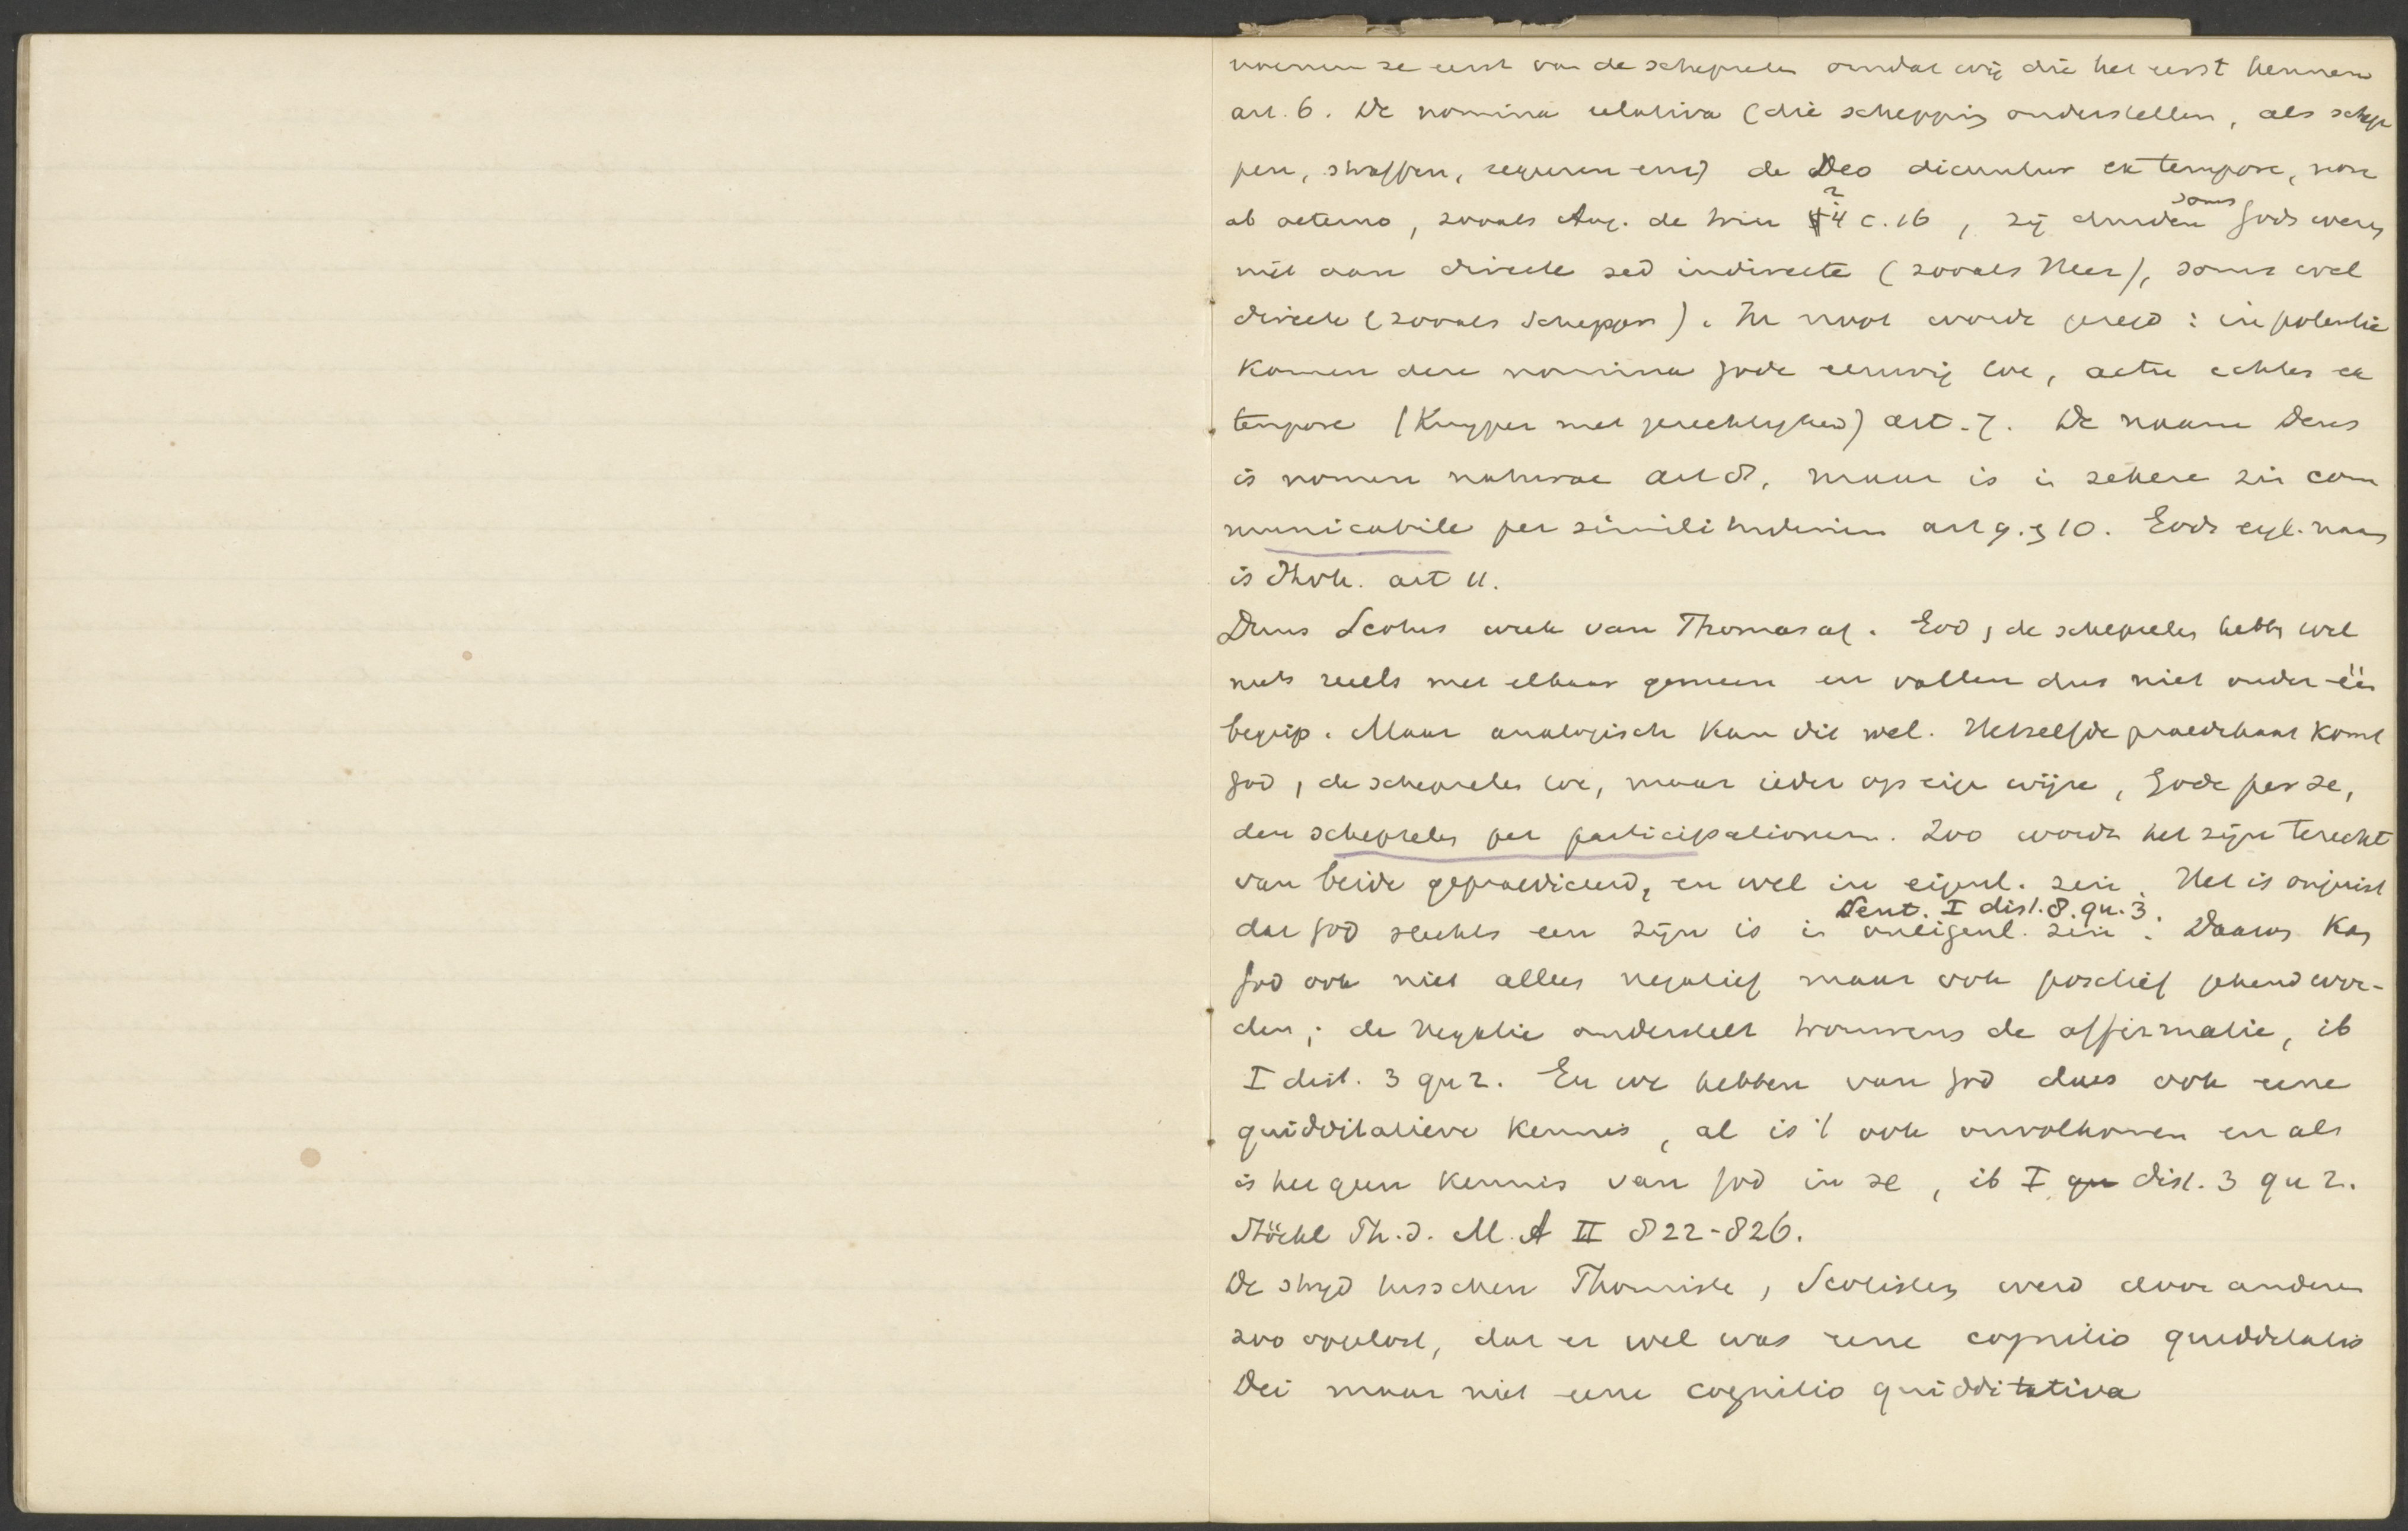 noemen ze eerst van de schepselen omdat wij die het eerst kennen
art. 6. De nomina relativa (die schepping onderstellen, als schep
pen, straffen, regeeren enz) de Deo dicuntur ex tempore, non
ab aeterno, zooals Aug. de trin 4 c. 16, zij duiden soms Gods wezen
niet aan directe sed indirecte (zooals Heer), soms wel
directe (zooals Schepper). In noot wordt gezegd: in potentie
komen deze nomina Gode eeuwig toe, actu echter ex
tempore (Kuyper met gerechtigheid) art. 7. De naam Deus
is nomen naturae art 8, maar is in zekere zin com
municabile per similitudinem art 9. & 10. Gods eig. naam
is Jhvh. art 11.
Duns Scotus week van Thomas af. God, de schepselen hebben wel
niets reëels met elkaar gemeen en vallen dus niet onder één
begrip. Maar analogisch kan dit wel. Hetzelfde praedikaat komt
God, de schepselen toe, maar ieder op eigen wijze, Gode per se,
den schepselen per participationem. Zoo wordt het zijn terecht
van beide gepraediceerd, en wel in eigenl. zin. Het is onjuist
dat God slechts een zijn is in oneigenl. zin. Sent. I dist. 8. qu. 3. Daarom kan
God ook niet alleen negatief maar ook positief gekend wor-
den; de negatie onderstelt trouwens de affirmatie, ib
I dist. 3 qu 2. En we hebben van God dus ook eene
quidditatieve kennis, al is 't ook onvolkomen en als
is het geen kennis van God in se, ib I qu dist. 3 qu 2.
Stöckl Ph. d. M. A II 822-826.
De strijd tusschen Thomisten, Scotisten werd door anderen
zoo opgelost, dat er wel was eene cognitio quidditatis
Dei maar niet eene cognitio quidditativa